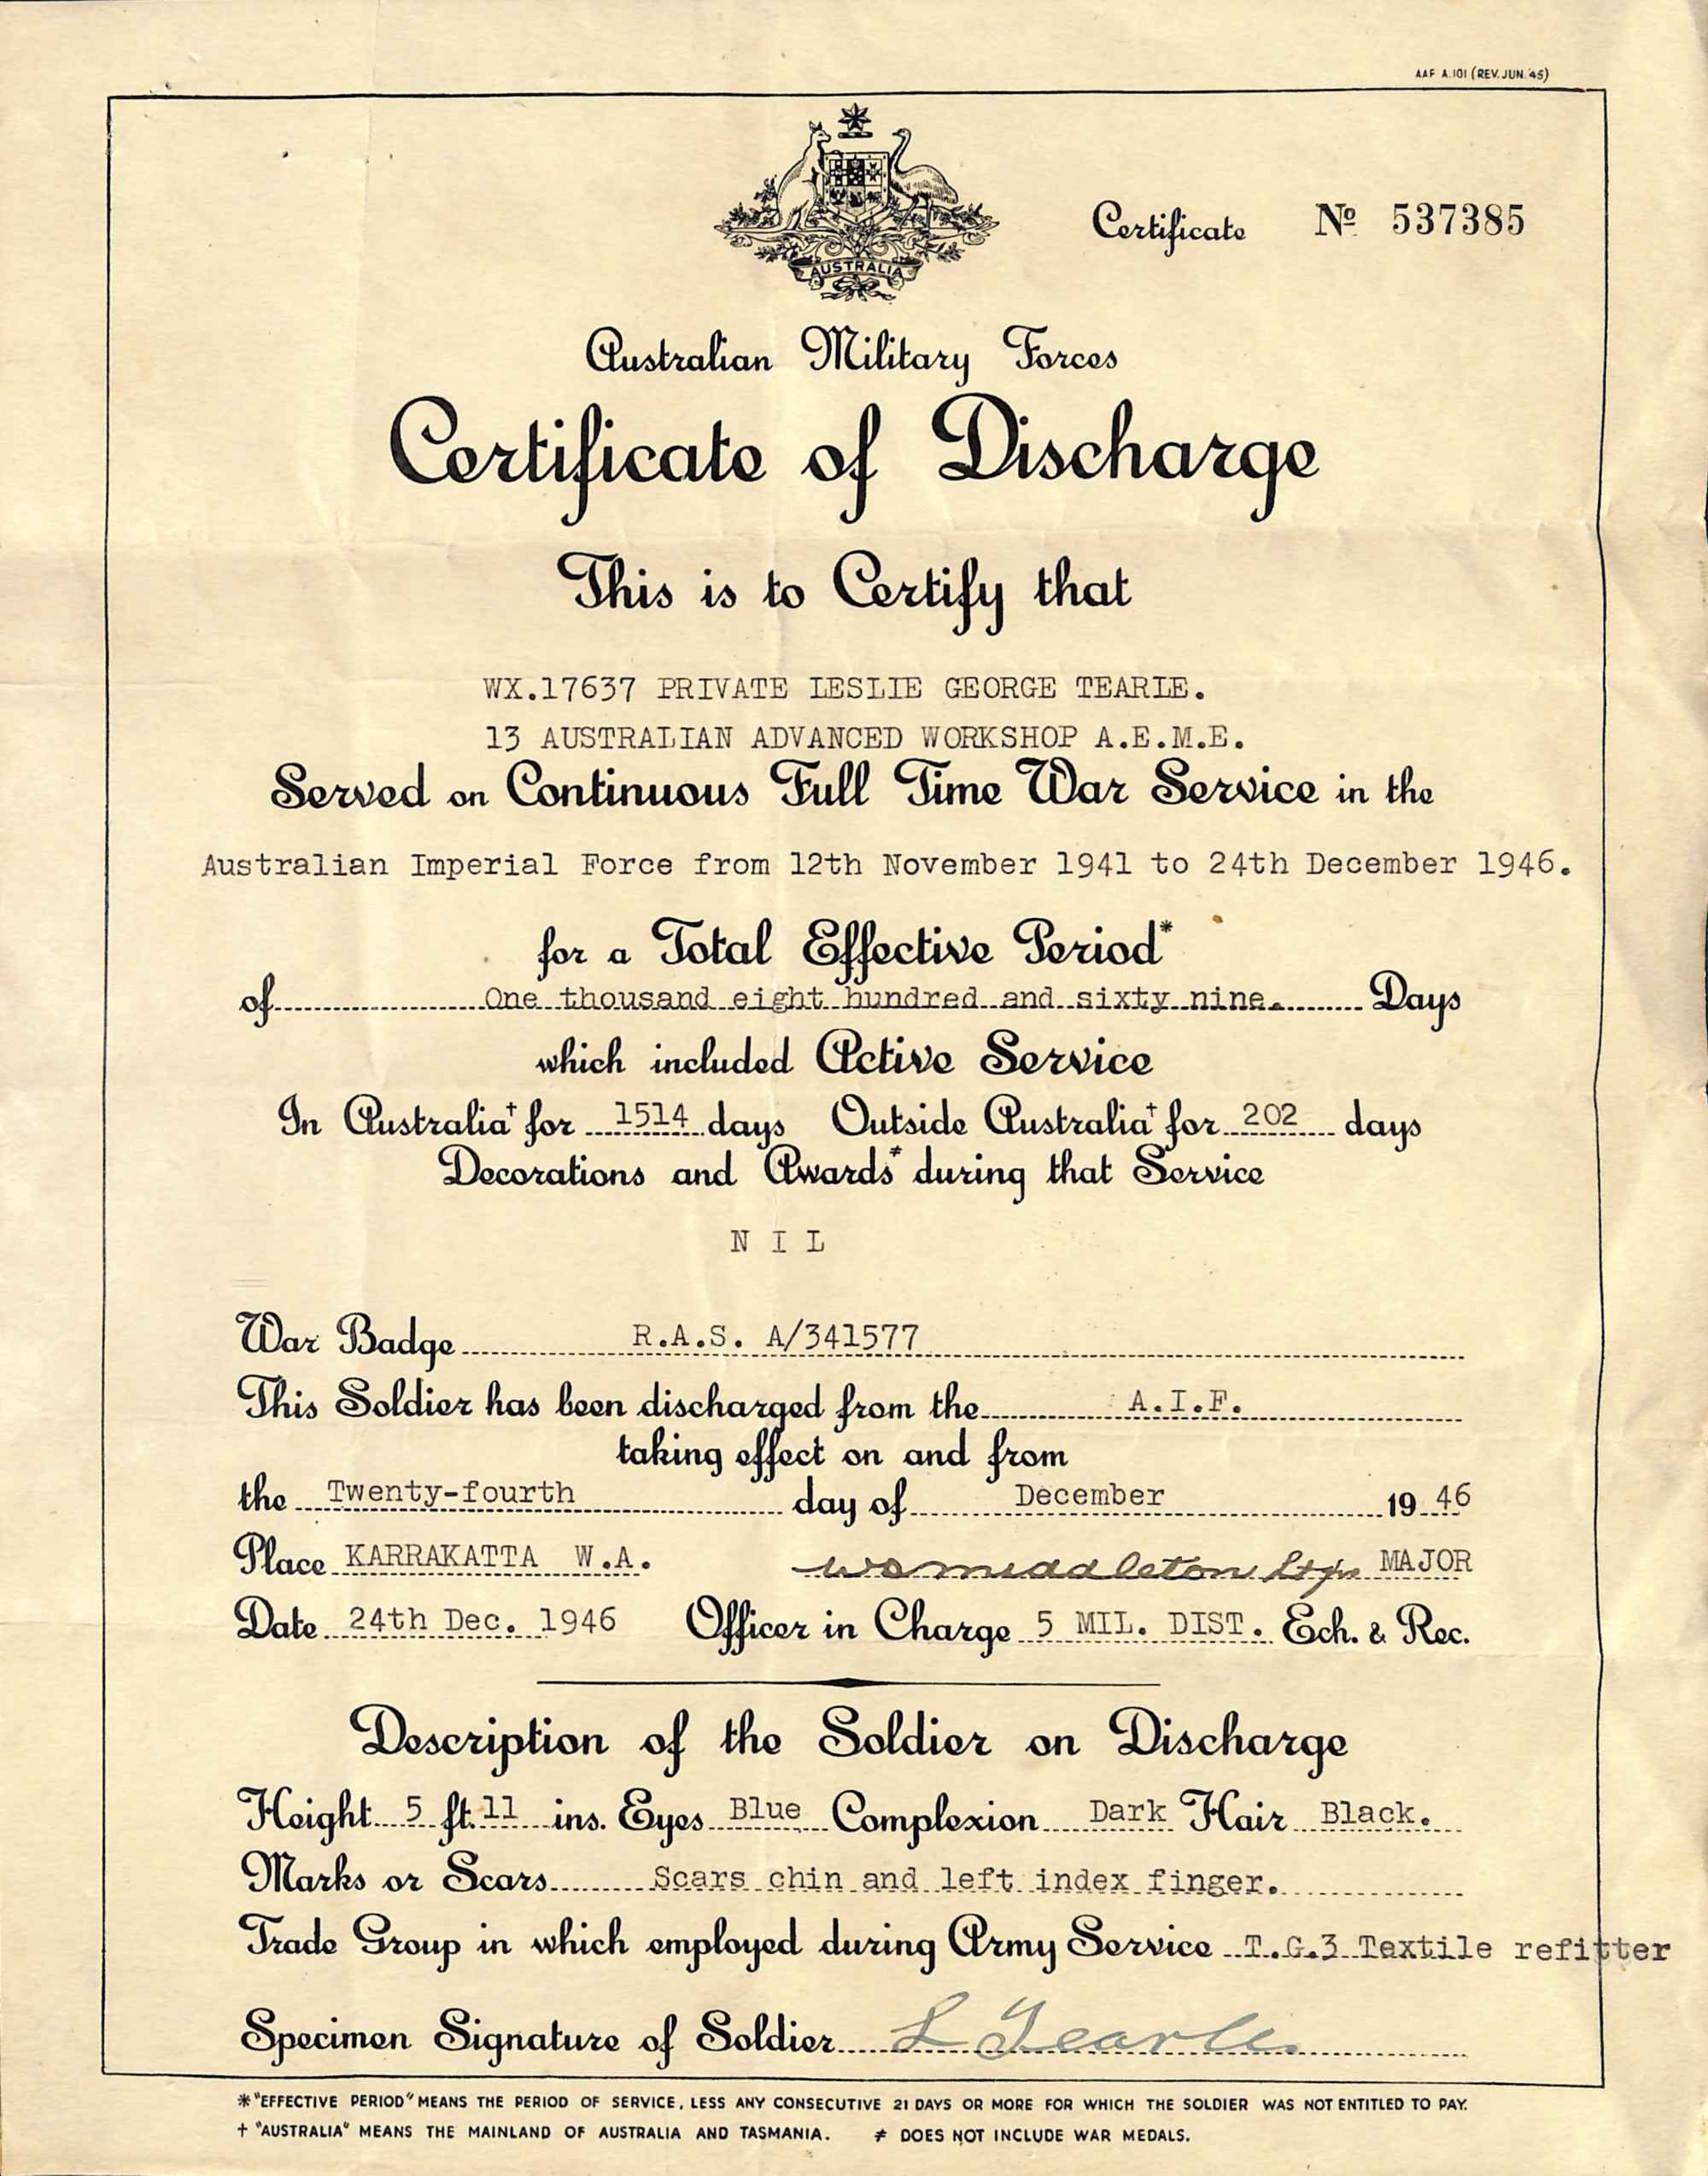 AAF A.101 (REV. JUN. '45)
AUSTRALIA
Certificate Nº 537385
Australian Military Forces
Certificate of Discharge
This is to Certify that
WX.17637 PRIVATE LESLIE GEORGE TEARLE.
13 AUSTRALIAN ADVANCED WORKSHOP A.E.M.E.
Served on Continuous Full Time War Service in the
Australian Imperial Force from 12th November 1941 to 24th December 1946.
for a Total Effective Period*
of One thousand eight hundred and sixty nine. Days
which included Active Service
In Australia† for 1514 days Outside Australia† for 202 days
Decorations and Awards≠ during that Service
N I L
War Badge R.A.S. A/341577
This Soldier has been discharged from the A.I.F.
taking effect on and from
the Twenty-fourth day of December 19 46
Place KARRAKATTA W.A. Middleton MAJOR
Date 24th Dec. 1946 Officer in Charge 5 MIL. DIST. Ech. & Rec.
Description of the Soldier on Discharge
Height 5 ft. 11 ins. Eyes Blue Complexion Dark Hair Black.
Marks or Scars Scars chin and left index finger.
Trade Group in which employed during Army Service T.G.3 Textile refitter
Specimen Signature of Soldier L Tearle
* "EFFECTIVE PERIOD" MEANS THE PERIOD OF SERVICE, LESS ANY CONSECUTIVE 21 DAYS OR MORE FOR WHICH THE SOLDIER WAS NOT ENTITLED TO PAY.
† "AUSTRALIA" MEANS THE MAINLAND OF AUSTRALIA AND TASMANIA. ≠ DOES NOT INCLUDE WAR MEDALS.